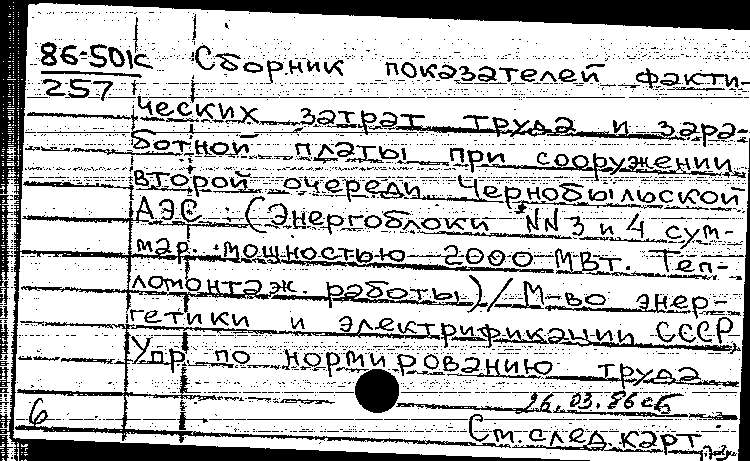 86-50к
257
Сборник показателей факти-
ческих затрат труда и зара-
ботной платы при сооружении
второй очереди Чернобыльской
АЭС : (Энергоблоки NN 3 и 4 сум-
мар. мощностью 2000 МВт. Теп-
ломонтаж. работы) / М-во энер-
гетики и электрификации СССР,
Упр по нормированию труда
26.03.86 сб
6
См. след. карт.